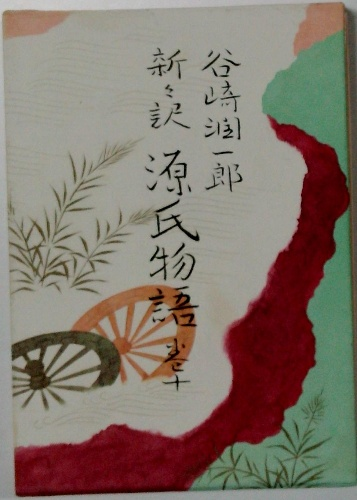 谷崎潤一郎
新々訳
源氏物語 巻十